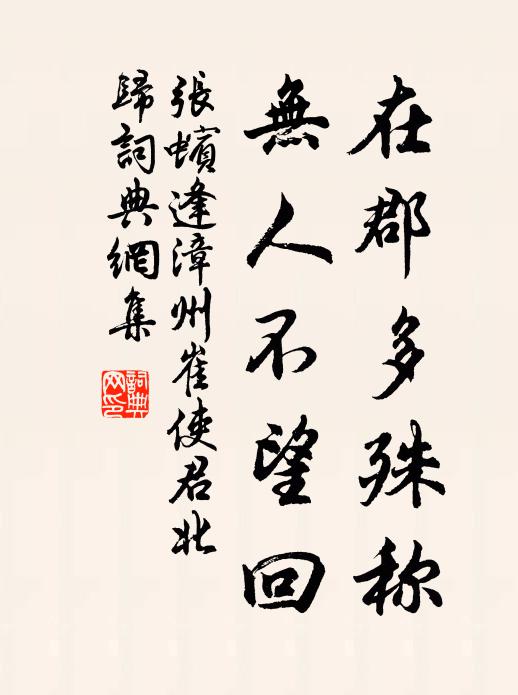 在郡多殊称
無人不望回
張蠙逢漳州崔使君北
歸詞典網集
詞典
网印